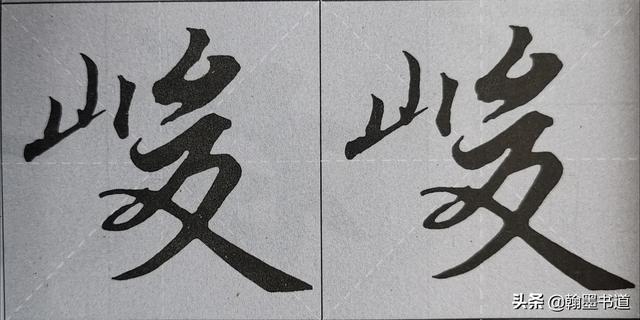 峻 峻
头条 @翰墨书道